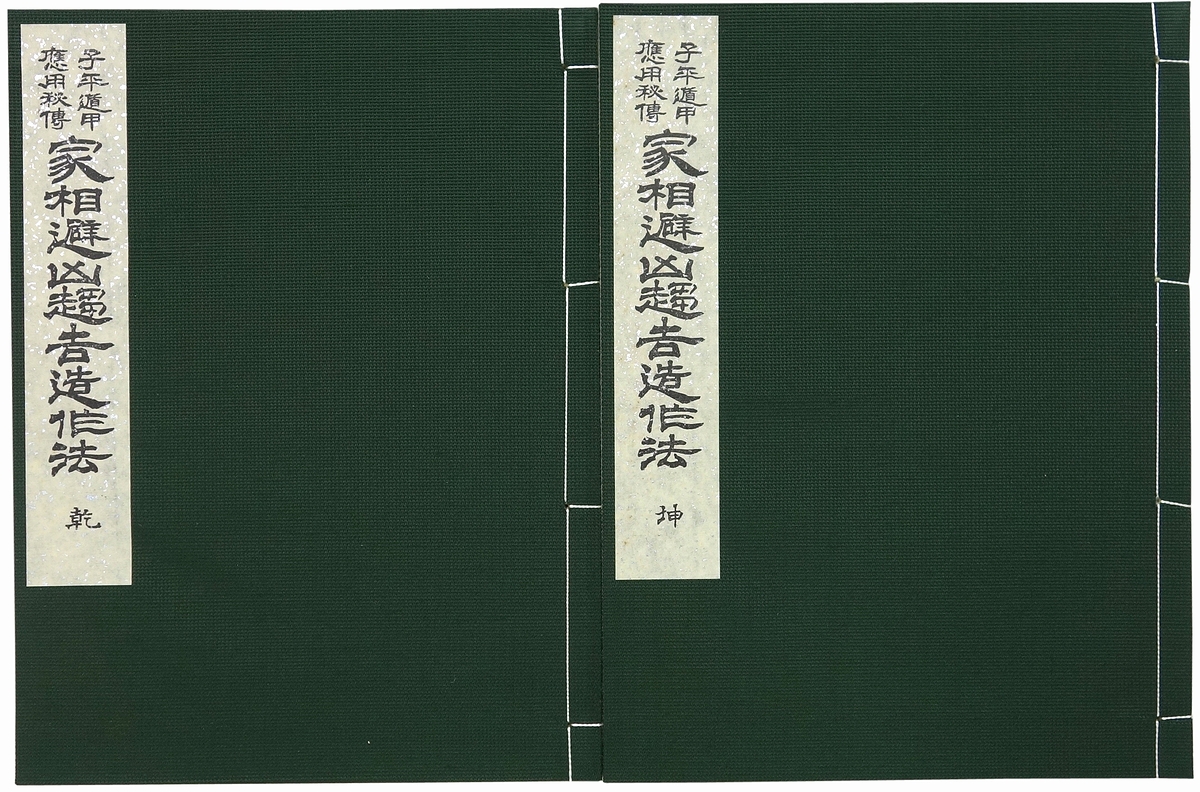 子平遁甲
應用秘傳
家相避凶趨吉造作法
乾
子平遁甲
應用秘傳
家相避凶趨吉造作法
坤